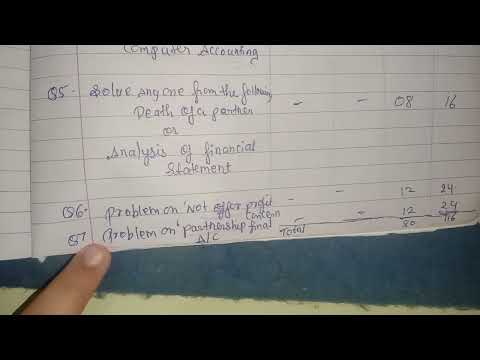 Computer Accounting
Q5. Solve any one from the following - - 08 16
Death of a partner
or
Analysis of financial
Statement
Q6. Problem on 'Not offer profit - - 12 24
concern
Q7. Problem on 'partnership final - - 12 24
A/C Total 80 116